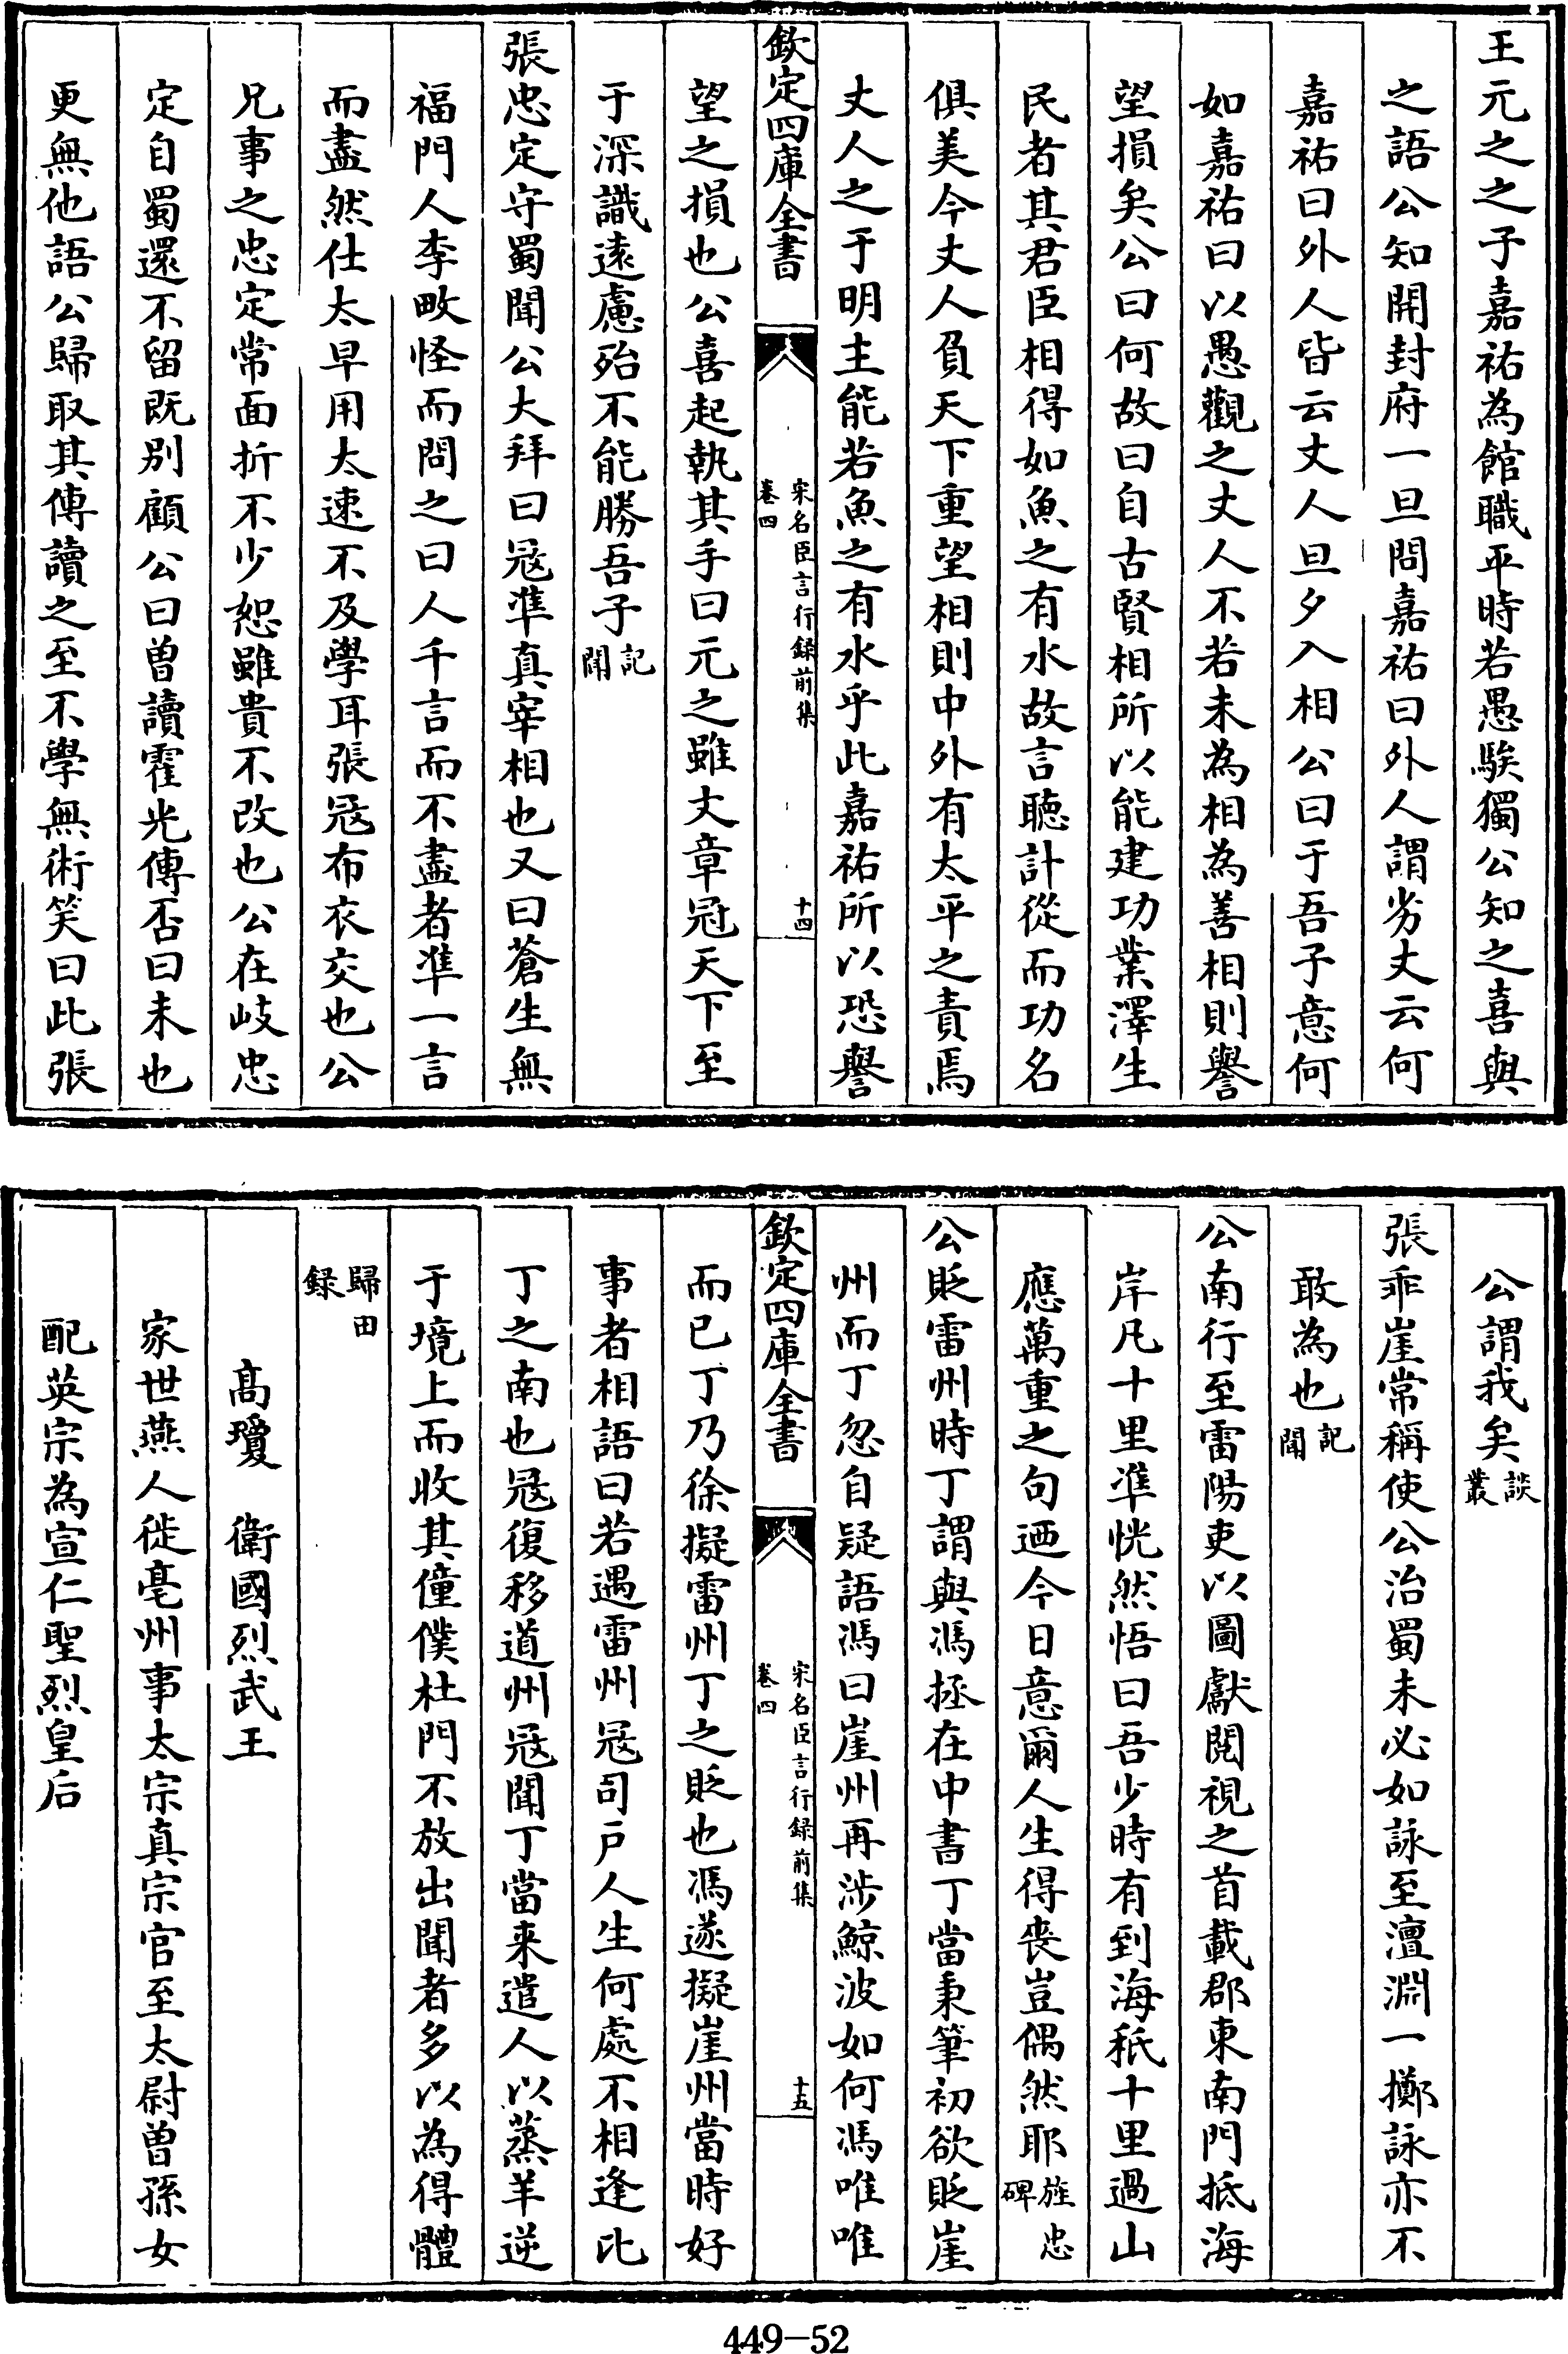 王元之之子嘉祐為館職平時若愚騃獨公知之喜與
之語公知開封府一旦問嘉祐曰外人謂劣丈云何
嘉祐曰外人皆云丈人旦夕入相公曰于吾子意何
如嘉祐曰以愚觀之丈人不若未為相為善相則譽
望損矣公曰何故曰自古賢相所以能建功業澤生
民者其君臣相得如魚之有水故言聽計從而功名
俱美今丈人負天下重望相則中外有太平之責焉
丈人之于明主能若魚之有水乎此嘉祐所以恐譽
欽定四庫全書
宋名臣言行録前集
卷四
十四
望之損也公喜起執其手曰元之雖丈章冠天下至
于深識遠慮殆不能勝吾子記聞
張忠定守蜀聞公大拜曰冦凖真宰相也又曰蒼生無
福門人李畋怪而問之曰人千言而不盡者凖一言
而盡然仕太早用太速不及學耳張冦布衣交也公
兄事之忠定常面折不少恕雖貴不改也公在岐忠
定自蜀還不留既别顧公曰曽讀霍光傳否曰未也
更無他語公歸取其傳讀之至不學無術笑曰此張
公謂我矣談叢
張乖崖常稱使公治蜀未必如詠至澶淵一擲詠亦不
敢為也記聞
公南行至雷陽吏以圖獻閲視之首載郡東南門抵海
岸凡十里凖恍然悟曰吾少時有到海秖十里過山
應萬重之句迺今日意爾人生得喪豈偶然耶旌忠碑
公貶雷州時丁謂與馮拯在中書丁當秉筆初欲貶崖
州而丁忽自疑語馮曰崖州再涉鯨波如何馮唯唯
欽定四庫全書
宋名臣言行録前集
卷四
十五
而已丁乃徐擬雷州丁之貶也馮遂擬崖州當時好
事者相語曰若遇雷州冦司戸人生何處不相逢比
丁之南也冦復移道州冦聞丁當来遣人以蒸羊逆
于境上而收其僮僕杜門不放出聞者多以為得體
歸田録
髙瓊　衛國烈武王
家世燕人徙亳州事太宗真宗官至太尉曽孫女
配英宗為宣仁聖烈皇后
449-52